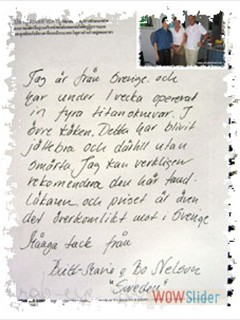 Jag är från Sverige och
har under 1 vecka opererat
in fyra titanskruvar. I
övre käken. Detta har blivit
jättebra och därtill utan
smärta. Jag kan verkligen
rekomendera den här tand-
läkaren och priset är även
det överkomligt mot i Sverige
Många tack från
Britt-Marie & Bo Nelson
"Sweden"
WOWSlider